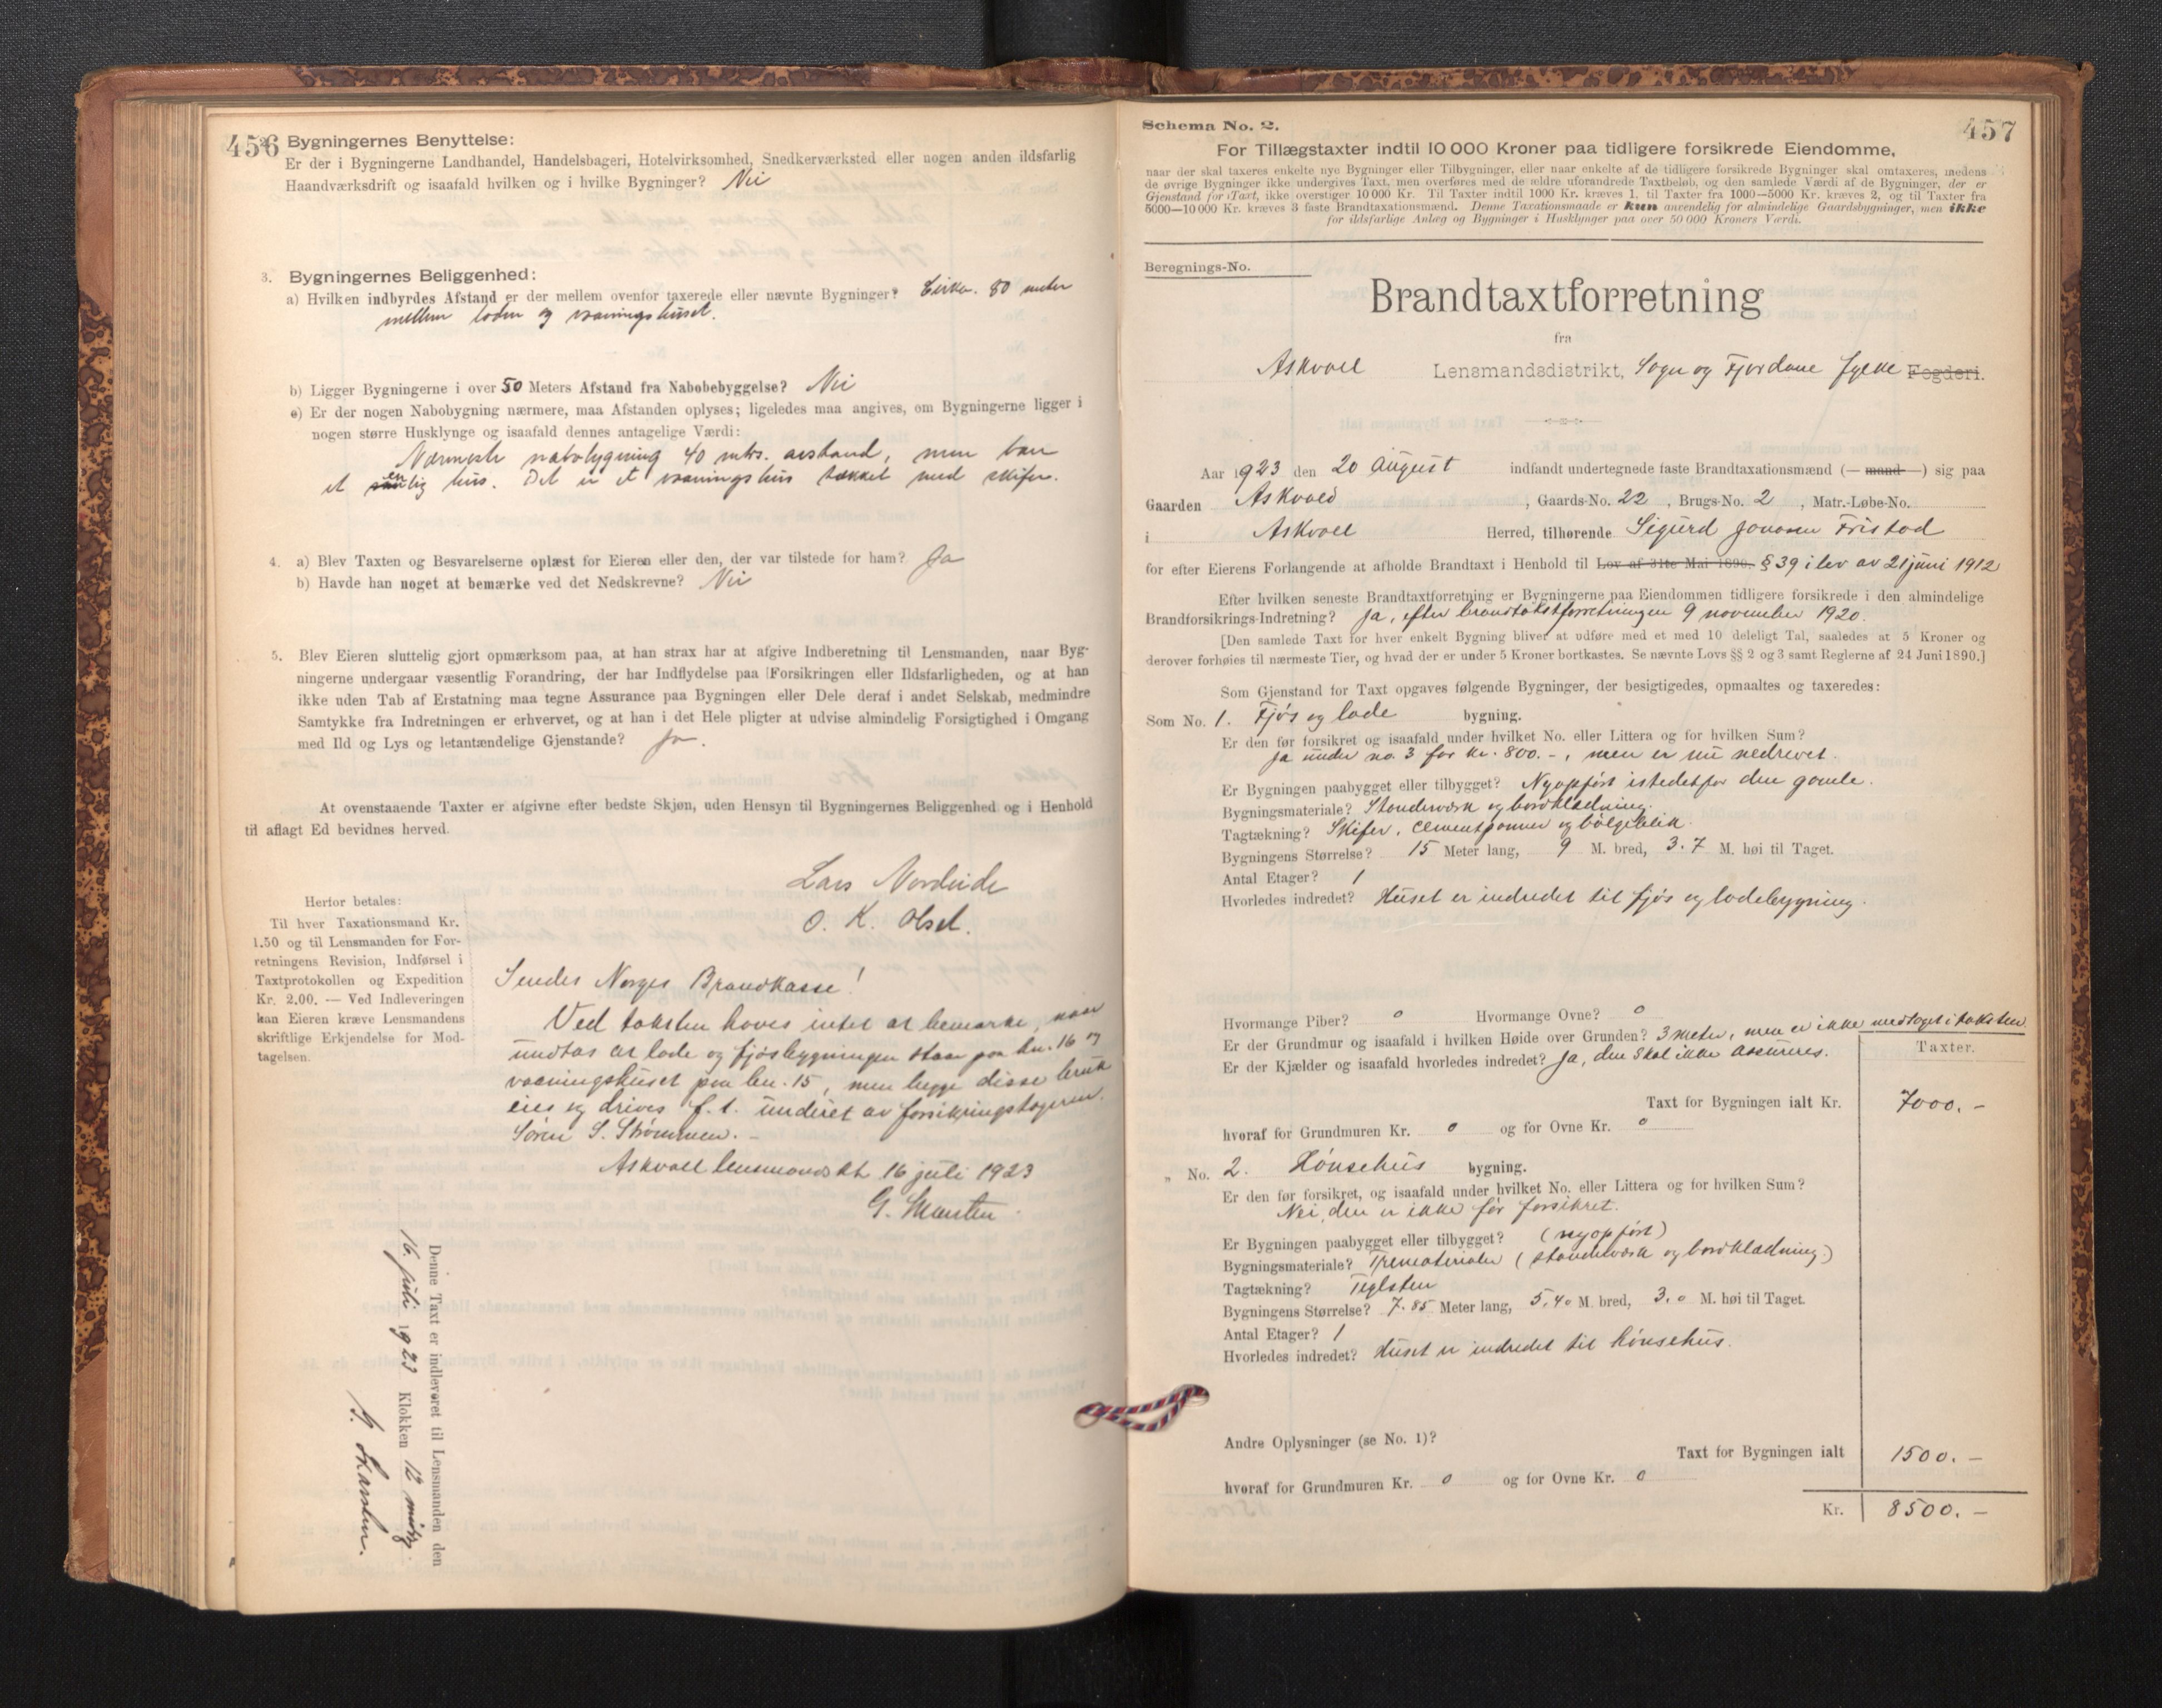 456
2. Bygningernes Benyttelse:
Er der i Bygningerne Landhandel, Handelsbageri, Hotelvirksomhed, Snedkerværksted eller nogen anden ildsfarlig
Haandværksdrift og isaafald hvilken og i hvilke Bygninger? Nei
3. Bygningernes Beliggenhed:
a) Hvilken indbyrdes Afstand er der mellem ovenfor taxerede eller nævnte Bygninger? Cirka. 80 meter
mellem loden og vaaningshuset.
b) Ligger Bygningerne i over 50 Meters Afstand fra Nabobebyggelse? Nei
c) Er der nogen Nabobygning nærmere, maa Afstanden oplyses; ligeledes maa angives, om Bygningerne ligger i
nogen større Husklynge og isaafald dennes antagelige Værdi:
Nærmeste nabobygning 40 mtrs. avstand, men bare
et enlig hus. Det er et vaaningshus tækket med skifer.
4. a) Blev Taxten og Besvarelserne oplæst for Eieren eller den, der var tilstede for ham? Ja
b) Havde han noget at bemærke ved det Nedskrevne? Nei
5. Blev Eieren sluttelig gjort opmærksom paa, at han strax har at afgive Indberetning til Lensmanden, naar Byg-
ningerne undergaar væsentlig Forandring, der har Indflydelse paa Forsikringen eller Ildsfarligheden, og at han
ikke uden Tab af Erstatning maa tegne Assurance paa Bygningen eller Dele deraf i andet Selskab, medmindre
Samtykke fra Indretningen er erhvervet, og at han i det Hele pligter at udvise almindelig Forsigtighed i Omgang
med Ild og Lys og letantændelige Gjenstande? Ja.
At ovenstaaende Taxter er afgivne efter bedste Skjøn, uden Hensyn til Bygningernes Beliggenhed og i Henhold
til aflagt Ed bevidnes herved.
Lars Nordeide
O. K. Olset.
Herfor betales:
Til hver Taxationsmand Kr.
1.50 og til Lensmanden for For-
retningens Revision, Indførsel i
Taxtprotokollen og Expedition
Kr. 2.00. — Ved Indleveringen
kan Eieren kræve Lensmandens
skriftlige Erkjendelse for Mod-
tagelsen.
Sendes Norges Brandkasse!
Ved taksten haves intet at bemærke, naar
undtas at lade og fjøsbygningen staar paa bn. 16 og
vaaningshuset paa bn. 15, men begge disse bruk
eies og drives f. t. underet av forsikringstageren.
Søren S. Strømmen. -
Askvoll lensmandskt. 16 juli 1923
Denne Taxt er indleveret til Lensmanden den
16. juli 1923 Klokken 12 midg.
457
Schema No. 2.
For Tillægstaxter indtil 10 000 Kroner paa tidligere forsikrede Eiendomme,
naar der skal taxeres enkelte nye Bygninger eller Tilbygninger, eller naar enkelte af de tidligere forsikrede Bygninger skal omtaxeres, medens
de øvrige Bygninger ikke undergives Taxt, men overføres med de ældre uforandrede Taxtbeløb, og den samlede Værdi af de Bygninger, der er
Gjenstand for Taxt, ikke overstiger 10 000 Kr. Til Taxter indtil 1000 Kr. kræves 1, til Taxter fra 1000—5000 Kr. kræves 2, og til Taxter fra
5000—10 000 Kr. kræves 3 faste Brandtaxationsmænd. Denne Taxationsmaade er kun anvendelig for almindelige Gaardsbygninger, men ikke
for ildsfarlige Anlæg og Bygninger i Husklynger paa over 50 000 Kroners Værdi.
Beregnings-No.
Brandtaxtforretning
fra
Askvoll Lensmandsdistrikt, Sogn og Fjordane fylke Fogderi.
Aar 1923 den 20 August indfandt undertegnede faste Brandtaxationsmænd (— mand —) sig paa
Gaarden Askvold, Gaards-No. 22, Brugs-No. 2, Matr.-Løbe-No.
i Askvoll Herred, tilhørende Sigurd Jonson Fristad
for efter Eierens Forlangende at afholde Brandtaxt i Henhold til Lov af 31te Mai 1890. § 39 i lov av 21 juni 1912
Efter hvilken seneste Brandtaxtforretning er Bygningerne paa Eiendommen tidligere forsikrede i den almindelige
Brandforsikrings-Indretning? Ja, efter brandtakstforretningen 9 november 1920.
[Den samlede Taxt for hver enkelt Bygning bliver at udføre med et med 10 deleligt Tal, saaledes at 5 Kroner og
derover forhøies til nærmeste Tier, og hvad der er under 5 Kroner bortkastes. Se nævnte Lovs §§ 2 og 3 samt Reglerne af 24 Juni 1890.]
Som Gjenstand for Taxt opgaves følgende Bygninger, der besigtigedes, opmaaltes og taxeredes:
Som No. 1. Fjøs og lade bygning.
Er den før forsikret og isaafald under hvilket No. eller Littera og for hvilken Sum?
Ja under no. 3 for kr. 800.-, men er nu nedrevet.
Er Bygningen paabygget eller tilbygget? Nyopført istedetfor den gamle.
Bygningsmateriale? Standerværk og bordklædning.
Tagtækning? Skifer, cementpanner og bølgeblik.
Bygningens Størrelse? 15 Meter lang, 9 M. bred, 3.7 M. høi til Taget.
Antal Etager? 1
Hvorledes indredet? Huset er indredet til fjøs og ladebygning.
Hvormange Piber? 0 Hvormange Ovne? 0
Er der Grundmur og isaafald i hvilken Høide over Grunden? 3 meter, men er ikke medtaget i taksten
Er der Kjælder og isaafald hvorledes indredet? Ja, den skal ikke assureres.
Taxter.
Taxt for Bygningen ialt Kr. 7000.-
hvoraf for Grundmuren Kr. 0 og for Ovne Kr. 0
„ No. 2. Hønsehus bygning.
Er den før forsikret, og isaafald under hvilket No. eller Littera og for hvilken Sum?
Nei, den er ikke før forsikret.
Er Bygningen paabygget eller tilbygget? (nyopført)
Bygningsmateriale? Trematerialer (standerværk og bordklædning)
Tagtækning? Teglsten
Bygningens Størrelse? 7.85 Meter lang, 5.40 M. bred, 3.0 M. høi til Taget.
Antal Etager? 1
Hvorledes indredet? Huset er indredet til hønsehus.
Andre Oplysninger (se No. 1)?
Taxt for Bygningen ialt 1500.-
hvoraf for Grundmuren Kr. 0 og for Ovne Kr. 0
Kr. 8500.-